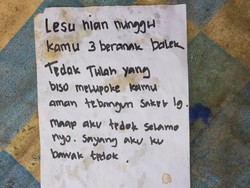 Lesu nian nunggu
kamu 3 beranak balek
Tedok Tulah yang
biso melupoke kamu
aman tebangun saket lg.
maap aku tedok selamo
nyo. sayang aku ku
bawak tedok.